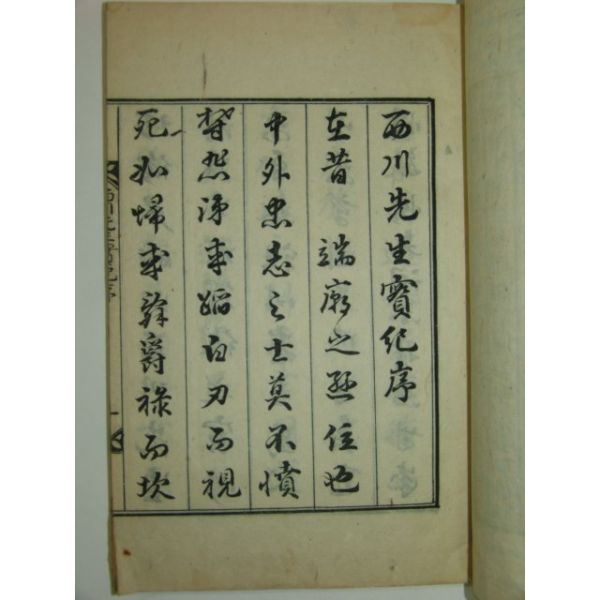 西川先生實紀序
在昔 端廟之遜位也
中外忠志之士莫不憤
惋怨涕或蹈白刃而視
死如歸或辭爵祿而坎